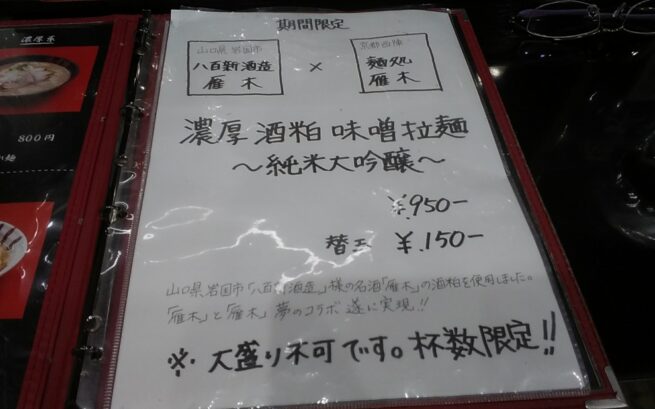 濃厚系
800円
期間限定
山口県 岩国市
八百新酒造
雁木
×
京都西陣
麺処
雁木
濃厚酒粕味噌拉麺
～純米大吟醸～
¥.950-
替玉 ¥.150-
山口県岩国市「八百新酒造」様の名酒「雁木」の酒粕を使用しました。
「雁木」と「雁木」夢のコラボ遂に実現!!
※大盛り不可です。杯数限定!!